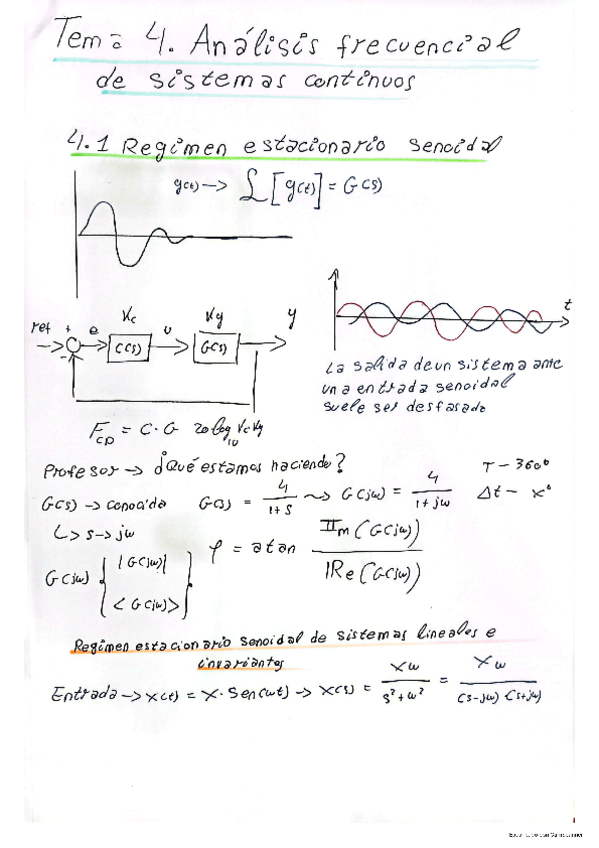 Tema 4. Análisis frecuencial
de sistemas continuos
4.1 Regimen estacionario senoidal
g(t) → ℒ[g(t)] = G(s)
Kc Kg
ref + e C(s) u G(s) y
-
t
La salida de un sistema ante
una entrada senoidal
suele ser desfasada
F_CD = C · G 20log₁₀ KcKg
Profesor → ¿Qué estamos haciendo?
T - 360º
G(s) → conocida G(s) = 4/(1+s) ⇝ G(jω) = 4/(1+jω) Δt - xº
↳ s → jω
G(jω) { |G(jω)| <G(jω)> }
φ = atan Im(G(jω))/Re(G(jω))
Regimen estacionario senoidal de sistemas lineales e
invariantes
Entrada → x(t) = X · Sen(ωt) → X(s) = Xω/(s²+ω²) = Xω/((s-jω)·(s+jω))